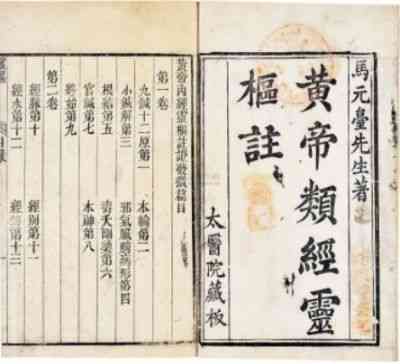 馬元臺先生著
黃帝類經靈
樞註
太醫院藏板
黃帝內經靈樞註證發微篇目
第一卷
九鍼十二原第一　本輸第二
小鍼解第三　邪氣臟腑病形第四
根結第五　壽夭剛柔第六
官鍼第七　本神第八
終始第九
第二卷
經脉第十　經別第十一
經水第十二　經筋第十三